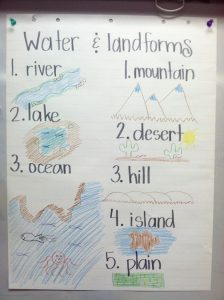 Water & landforms
1. river
2. lake
3. ocean
1. mountain
2. desert
3. hill
4. island
5. plain